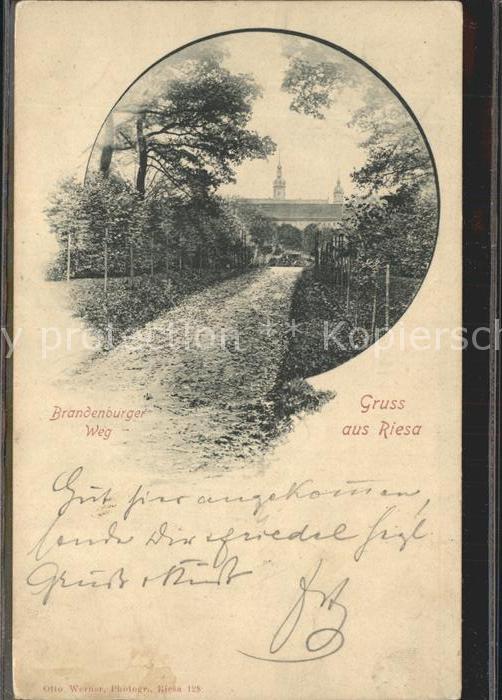 y protected ** Kopierschu
Brandenburger
Weg
Gruss
aus Riesa
Gut hier angekommen,
sende Dir
Gruß & Kuß
Otto Werner, Photogr., Riesa 128